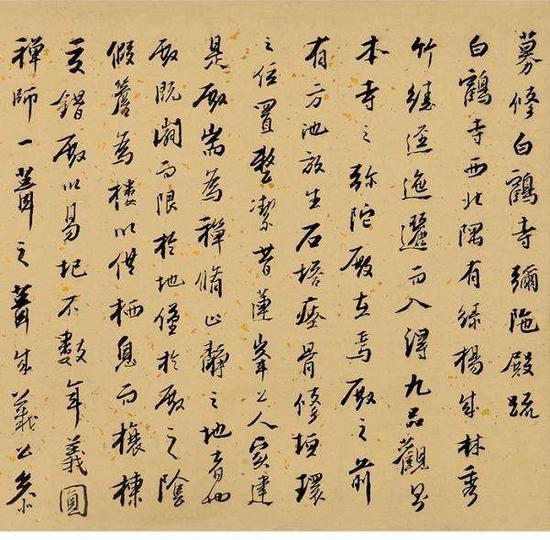 募修白鶴寺彌陁殿疏
白鶴寺西北隅有綠楊成林秀
竹繞逕迤邐而入得九品觀即
本寺之弥陀殿在焉殿之前
有方池放生石塔瘞骨修垣環
之位置整潔昔蓮峯上人寔建
是殿耑為禪脩止靜之地者也
殿既湫而限於地僅於殿之陰
假簷為樓以供栖息而欀棟
交錯殿以易圮不數年義圓
禪師一葺之葺生義公㳟